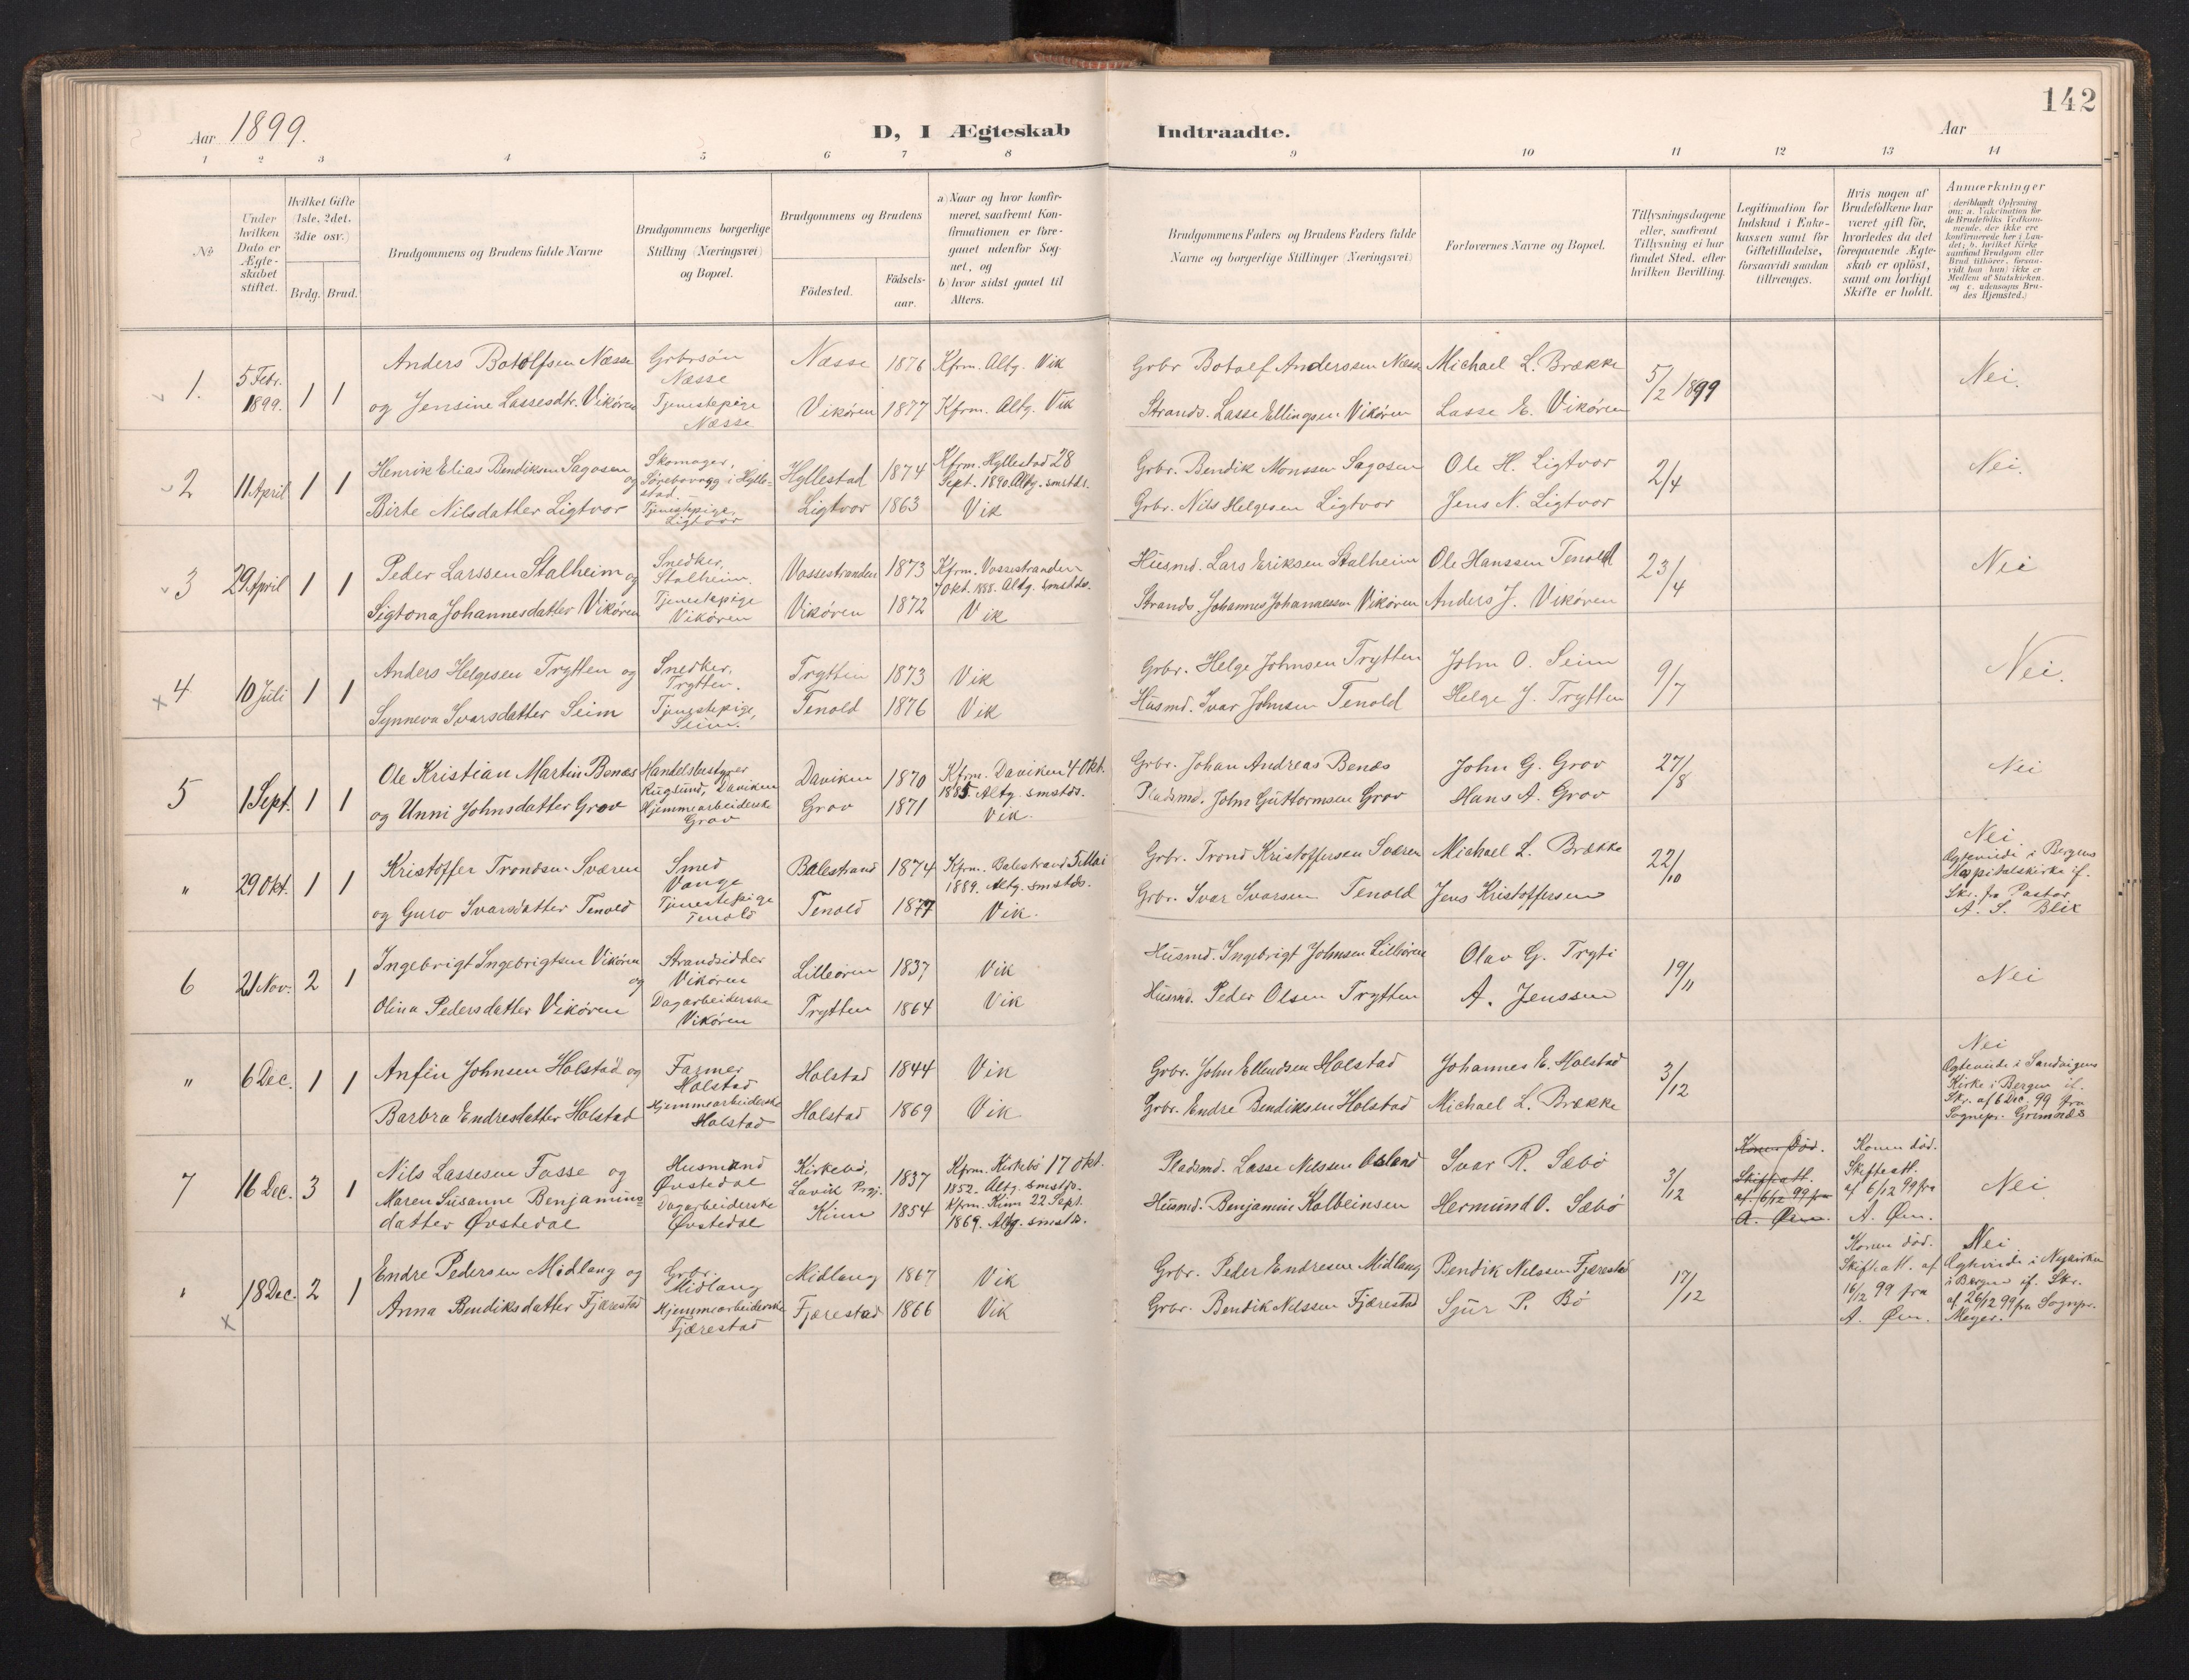 142
Aar 1899.
D, I Ægteskab Indtraadte.
Aar
1 2 3 4 5 6 7 8 9 10 11 12 13 14
№
Under hvilken Dato er Ægteskabet stiftet.
Hvilket Gifte (1ste, 2det, 3die osv.)
Brdg. Brud.
Brudgommens og Brudens fulde Navne
Brudgommens borgerlige Stilling (Næringsvei) og Bopæl.
Brudgommens og Brudens
Födested.
Födselsaar.
a) Naar og hvor konfirmeret, saafremt Konfirmationen er foregaaet udenfor Sognet, og
b) hvor sidst gaaet til Alters.
Brudgommens Faders og Brudens Faders fulde Navne og borgerlige Stillinger (Næringsvei)
Forlovernes Navne og Bopæl.
Tillysningsdagene eller, saafremt Tillysning ei har fundet Sted, efter hvilken Bevilling.
Legitimation for Indskud i Enkekassen samt for Giftetilladelse, forsaavidt saadan tiltrænges.
Hvis nogen af Brudefolkene har været gift för, hvorledes da det foregaaende Ægteskab er oplöst, samt om lovligt Skifte er holdt.
Anmærkninger (deriblandt Oplysning om: a. Vakcination for de Brudefolks Vedkommende, der ikke ere konfirmerede her i Landet; b. hvilket Kirkesamfund Brudgom eller Brud tilhörer, forsaavidt han (hun) ikke er Medlem af Statskirken, og c. udensogns Brudes Hjemsted.)
1. 5 Febr. 1899. 1 1
Anders Botolfsen Næsse
og Jensine Lassesdtr. Vikören
Grbrsön Næsse
Tjenestepige Næsse
Næsse 1876 Kfrm. Altg. Vik
Vikören 1877 Kfrm. Altg. Vik
Grbr Botolf Anderssen Næsse
Strands. Lasse Ellingsen Vikören
Michael L. Brække
Lasse E. Vikören
5/2 1899
Nei.
2 11 April 1 1
Henrik Elias Bendiksen Sagosen og
Birte Nilsdatter Ligtvor
Skomager, Sörebovaag i Hyllestad.
Tjenestepige, Ligtvor
Hyllestad 1874 Kfrm. Hyllestad 28 Sept. 1890. Altg. smstds.
Ligtvor 1863 Vik
Grbr. Bendik Monssen Sagosen
Grbr. Nils Helgesen Ligtvor
Ole H. Ligtvor
Jens N. Ligtvor
2/4
Nei.
3 29 April 1 1
Peder Larssen Stalheim og
Sigtona Johannesdatter Vikören
Snedker, Stalheim.
Tjenestepige Vikören
Vossestranden 1873 Kfrm. Vossestranden 7 Okt. 1888. Altg. smstds.
Vikören 1872 Vik
Husmd. Lars Eriksen Stalheim
Strands. Johannes Johannessen Vikören
Ole Hanssen Tenold
Anders J. Vikören
23/4
Nei
4 10 Juli 1 1
Anders Helgesen Trytten og
Synneva Ivarsdatter Seim
Snedker, Trytten.
Tjenestepige, Seim.
Trytten 1873 Vik
Tenold 1876 Vik
Grbr. Helge Johnsen Trytten
Husmd. Ivar Johnsen Tenold
John O. Seim
Helge J. Trytten
9/7
Nei.
5 1 Sept. 1 1
Ole Kristian Martin Benæs
og Unni Johnsdatter Grov
Handelsbestyrer Rugsund, Daviken
Hjemmearbeiderske Grov
Daviken 1870 Kfrm. Daviken 4 Okt. 1885 Altg. smstds.
Grov 1871 Vik.
Grbr. Johan Andreas Benæs
Pladsmd. John Guttormsen Grov
John G. Grov
Hans A. Grov
27/8
Nei
" 29 Okt. 1 1
Kristoffer Trondsen Sværen
og Guro Ivarsdatter Tenold
Smed Vange
Tjenestepige Tenold
Balestrand 1874 Kfrm. Balestrand 5 Mai 1889. Altg. smstds.
Tenold 1877 Vik.
Grbr. Trond Kristoffersen Sværen
Grbr. Ivar Ivarsen Tenold
Michael L. Brække
Jens Kristoffersen
22/10
Nei
Ægteviede i Bergens Hospitalskirke if. Skr. fra Pastor A. S. Blix
6 21 Nov. 2 1
Ingebrigt Ingebrigtsen Vikören og
Olina Pedersdatter Vikören
Strandsidder Vikören
Dagarbeiderske Vikören
Lilleören 1837 Vik
Trytten 1864 Vik
Husmd. Ingebrigt Johnsen Lilleören
Husmd. Peder Olsen Trytten
Olav G. Tryti
A. Jenssen
19/11
Nei
" 6 Dec. 1 1
Anfin Johnsen Holstad og
Barbra Endresdatter Holstad
Farmer Holstad
Hjemmearbeiderske Holstad
Holstad 1844 Vik
Holstad 1869 Vik
Grbr. John Ellendsen Holstad
Grbr. Endre Bendiksen Holstad
Johannes E. Holstad
Michael L. Brække
3/12
Nei
Ægteviede i Sandvigens Kirke i Bergen if. Skr. af 6 Dec. 99 fra Sognepr. Grimnæs
7 16 Dec. 3 1
Nils Lassesen Fosse og
Maren Susanne Benjamins=
datter Övstedal
Husmand Övstedal
Dagarbeiderske Övstedal
Kirkebö, Lavik Prgj. 1837 Kfrm. Kirkebö 17 Okt. 1852. Altg. smstds.
Kinn 1854 Kfrm. Kinn 22 Sept. 1869. Altg. smstds.
Pladsmd. Lasse Nilssen Osland
Husmd. Benjamin Kolbeinsen
Ivar R. Sæbö
Hermund O. Sæbö
3/12
Konen död. Skifteatt. af 6/12 99 fra A. Øen.
Konen död. Skifteatt. af 6/12 99 fra A. Øen.
Nei
" 18 Dec. 2 1
Endre Pedersen Midlang og
Anna Bendiksdatter Fjærestad
Grbr. Midlang
Hjemmearbeiderske Fjærestad
Midlang 1867 Vik
Fjærestad 1866 Vik
Grbr. Peder Endresen Midlang
Grbr. Bendik Nilssen Fjærestad
Bendik Nilssen Fjærestad
Sjur P. Bö
17/12
Konen död. Skifteatt. af 16/12 99 fra A. Øen.
Nei
Ægteviede i Nykirken i Bergen if. Skr. af 26/12 99 fra Sognepr. Meyer.